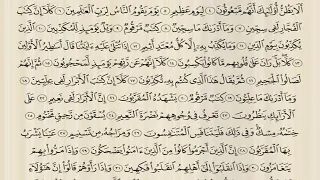 أَلَا يَظُنُّ أُوْلَٰٓئِكَ أَنَّهُم مَّبْعُوثُونَ ٤ لِيَوْمٍ عَظِيمٍ ٥ يَوْمَ يَقُومُ ٱلنَّاسُ لِرَبِّ ٱلْعَٰلَمِينَ ٦ كَلَّآ إِنَّ كِتَٰبَ
ٱلْفُجَّارِ لَفِى سِجِّينٍ ٧ وَمَآ أَدْرَىٰكَ مَا سِجِّينٌ ٨ كِتَٰبٌ مَّرْقُومٌ ٩ وَيْلٌ يَوْمَئِذٍ لِّلْمُكَذِّبِينَ ١٠ ٱلَّذِينَ
يُكَذِّبُونَ بِيَوْمِ ٱلدِّينِ ١١ وَمَا يُكَذِّبُ بِهِۦٓ إِلَّا كُلُّ مُعْتَدٍ أَثِيمٍ ١٢ إِذَا تُتْلَىٰ عَلَيْهِ ءَايَٰتُنَا قَالَ أَسَٰطِيرُ ٱلْأَوَّلِينَ ١٣
كَلَّا بَلْ رَانَ عَلَىٰ قُلُوبِهِم مَّا كَانُوا۟ يَكْسِبُونَ ١٤ كَلَّآ إِنَّهُمْ عَن رَّبِّهِمْ يَوْمَئِذٍ لَّمَحْجُوبُونَ ١٥ ثُمَّ إِنَّهُمْ
لَصَالُوا۟ ٱلْجَحِيمِ ١٦ ثُمَّ يُقَالُ هَٰذَا ٱلَّذِى كُنتُم بِهِۦ تُكَذِّبُونَ ١٧ كَلَّآ إِنَّ كِتَٰبَ ٱلْأَبْرَارِ لَفِى عِلِّيِّينَ ١٨
وَمَآ أَدْرَىٰكَ مَا عِلِّيُّونَ ١٩ كِتَٰبٌ مَّرْقُومٌ ٢٠ يَشْهَدُهُ ٱلْمُقَرَّبُونَ ٢١ إِنَّ ٱلْأَبْرَارَ لَفِى نَعِيمٍ ٢٢ عَلَى
ٱلْأَرَآئِكِ يَنظُرُونَ ٢٣ تَعْرِفُ فِى وُجُوهِهِمْ نَضْرَةَ ٱلنَّعِيمِ ٢٤ يُسْقَوْنَ مِن رَّحِيقٍ مَّخْتُومٍ ٢٥
خِتَٰمُهُۥ مِسْكٌ وَفِى ذَٰلِكَ فَلْيَتَنَافَسِ ٱلْمُتَنَٰفِسُونَ ٢٦ وَمِزَاجُهُۥ مِن تَسْنِيمٍ ٢٧ عَيْنًا يَشْرَبُ
بِهَا ٱلْمُقَرَّبُونَ ٢٨ إِنَّ ٱلَّذِينَ أَجْرَمُوا۟ كَانُوا۟ مِنَ ٱلَّذِينَ ءَامَنُوا۟ يَضْحَكُونَ ٢٩ وَإِذَا مَرُّوا۟ بِهِمْ
يَتَغَامَزُونَ ٣٠ وَإِذَا ٱنقَلَبُوٓا۟ إِلَىٰٓ أَهْلِهِمُ ٱنقَلَبُوا۟ فَكِهِينَ ٣١ وَإِذَا رَأَوْهُمْ قَالُوٓا۟ إِنَّ هَٰٓؤُلَآءِ